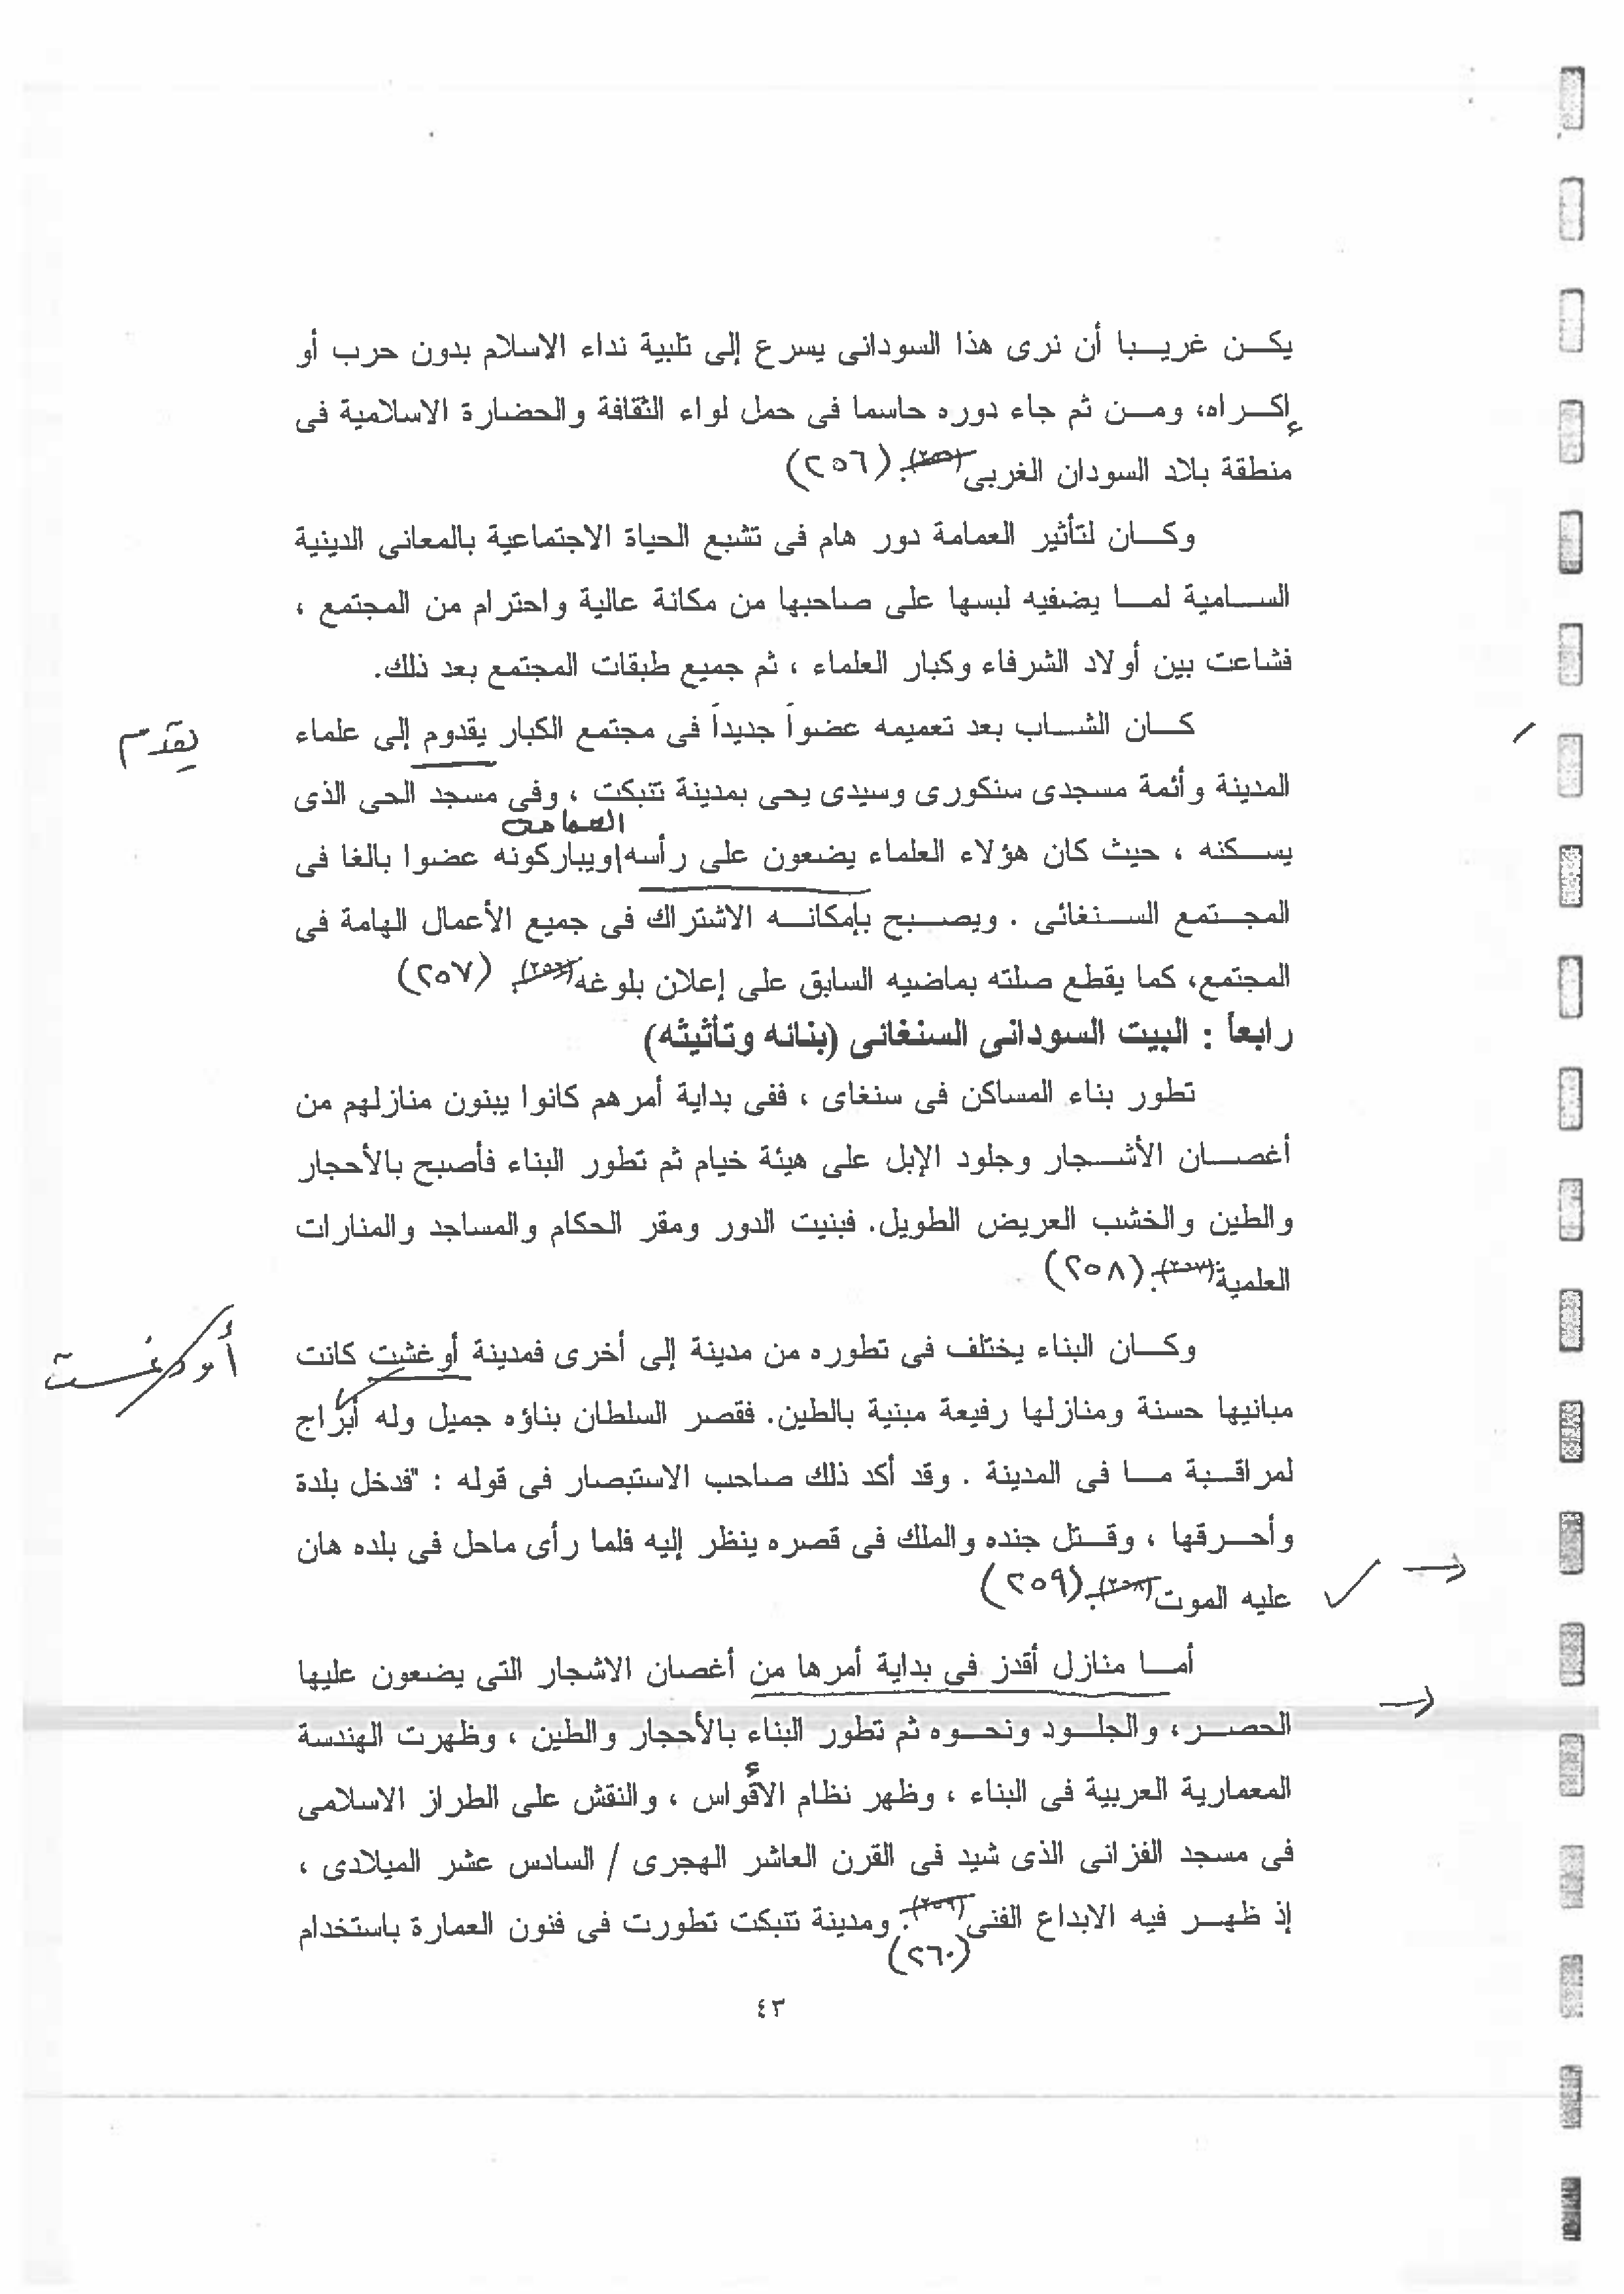 يكن غريبا أن نرى هذا السودانى يسرع إلى تلبية نداء الاسلام بدون حرب أو
إكراه، ومن ثم جاء دوره حاسما فى حمل لواء الثقافة والحضارة الاسلامية فى
منطقة بلاد السودان الغربى(٢٥٥). (٢٥٦)
وكان لتأثير العمامة دور هام فى تشبع الحياة الاجتماعية بالمعانى الدينية
السامية لما يضفيه لبسها على صاحبها من مكانة عالية واحترام من المجتمع ،
فشاعت بين أولاد الشرفاء وكبار العلماء ، ثم جميع طبقات المجتمع بعد ذلك.
كان الشاب بعد تعميمه عضواً جديداً فى مجتمع الكبار يقدوم إلى علماء
يقدم
المدينة وأئمة مسجدى سنكورى وسيدى يحى بمدينة تنبكت ، وفى مسجد الحى الذى
العمامة
يسكنه ، حيث كان هؤلاء العلماء يضعون على رأسه\ويباركونه عضوا بالغا فى
المجتمع السنغائى . ويصبح بإمكانه الاشتراك فى جميع الأعمال الهامة فى
المجتمع، كما يقطع صلته بماضيه السابق على إعلان بلوغه(٢٥٦). (٢٥٧)
رابعاً : البيت السودانى السنغائى (بنائه وتأثيثه)
تطور بناء المساكن فى سنغاى ، ففى بداية أمرهم كانوا يبنون منازلهم من
أغصان الأشجار وجلود الإبل على هيئة خيام ثم تطور البناء فأصبح بالأحجار
والطين والخشب العريض الطويل. فبنيت الدور ومقر الحكام والمساجد والمنارات
العلمية(٢٥٧). (٢٥٨)
وكان البناء يختلف فى تطوره من مدينة إلى أخرى فمدينة أوغشت كانت
أودغست
مبانيها حسنة ومنازلها رفيعة مبنية بالطين. فقصر السلطان بناؤه جميل وله أبراج
لمراقبة ما فى المدينة . وقد أكد ذلك صاحب الاستبصار فى قوله : "فدخل بلدة
وأحرقها ، وقتل جنده والملك فى قصره ينظر إليه فلما رأى ماحل فى بلده هان
عليه الموت(٢٥٨). (٢٥٩)
أما منازل أقدز فى بداية أمرها من أغصان الاشجار التى يضعون عليها
الحصر، والجلود ونحوه ثم تطور البناء بالأحجار والطين ، وظهرت الهندسة
المعمارية العربية فى البناء ، وظهر نظام الأقواس ، والنقش على الطراز الاسلامى
فى مسجد الفزانى الذى شيد فى القرن العاشر الهجرى / السادس عشر الميلادى ،
إذ ظهر فيه الابداع الفنى(٢٥٩). ومدينة تنبكت تطورت فى فنون العمارة باستخدام
(٢٦٠)
٤٣